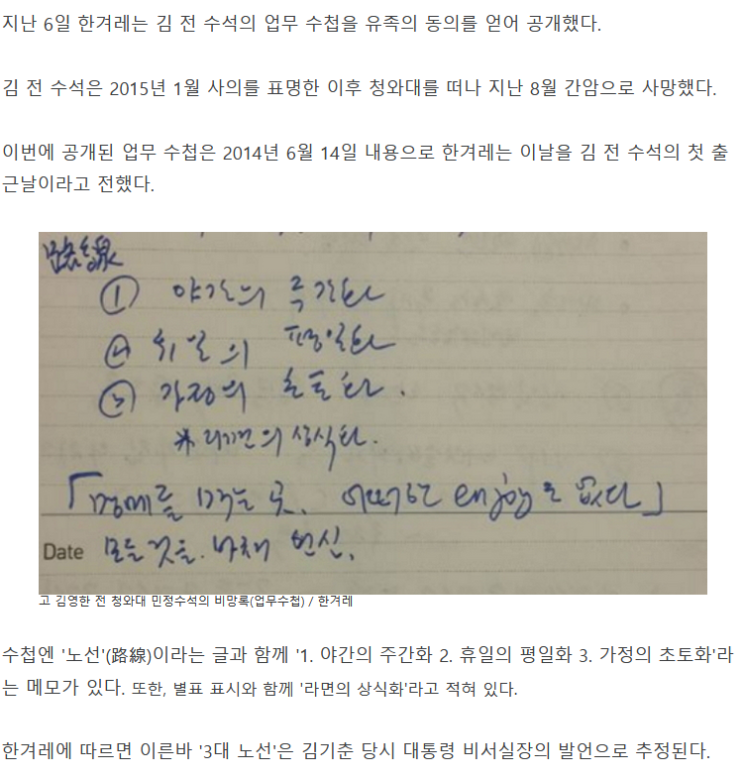 지난 6일 한겨레는 김 전 수석의 업무 수첩을 유족의 동의를 얻어 공개했다.
김 전 수석은 2015년 1월 사의를 표명한 이후 청와대를 떠나 지난 8월 간암으로 사망했다.
이번에 공개된 업무 수첩은 2014년 6월 14일 내용으로 한겨레는 이날을 김 전 수석의 첫 출
근날이라고 전했다.
路線
① 야간의 주간화
② 휴일의 평일화
③ 가정의 초토화.
※ 라면의 상식화.
「명예를 먹는 곳. 어떠한 enjoy도 없다」
Date 모든 것을. 바쳐 헌신.
고 김영한 전 청와대 민정수석의 비망록(업무수첩) / 한겨레
수첩엔 '노선'(路線)이라는 글과 함께 '1. 야간의 주간화 2. 휴일의 평일화 3. 가정의 초토화'라
는 메모가 있다. 또한, 별표 표시와 함께 '라면의 상식화'라고 적혀 있다.
한겨레에 따르면 이른바 '3대 노선'은 김기춘 당시 대통령 비서실장의 발언으로 추정된다.